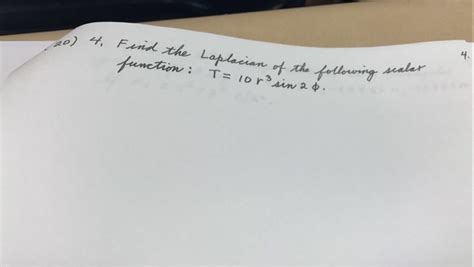 20) 4. Find the Laplacian of the following scalar
function: T = 10 r³ sin 2 φ.
4.